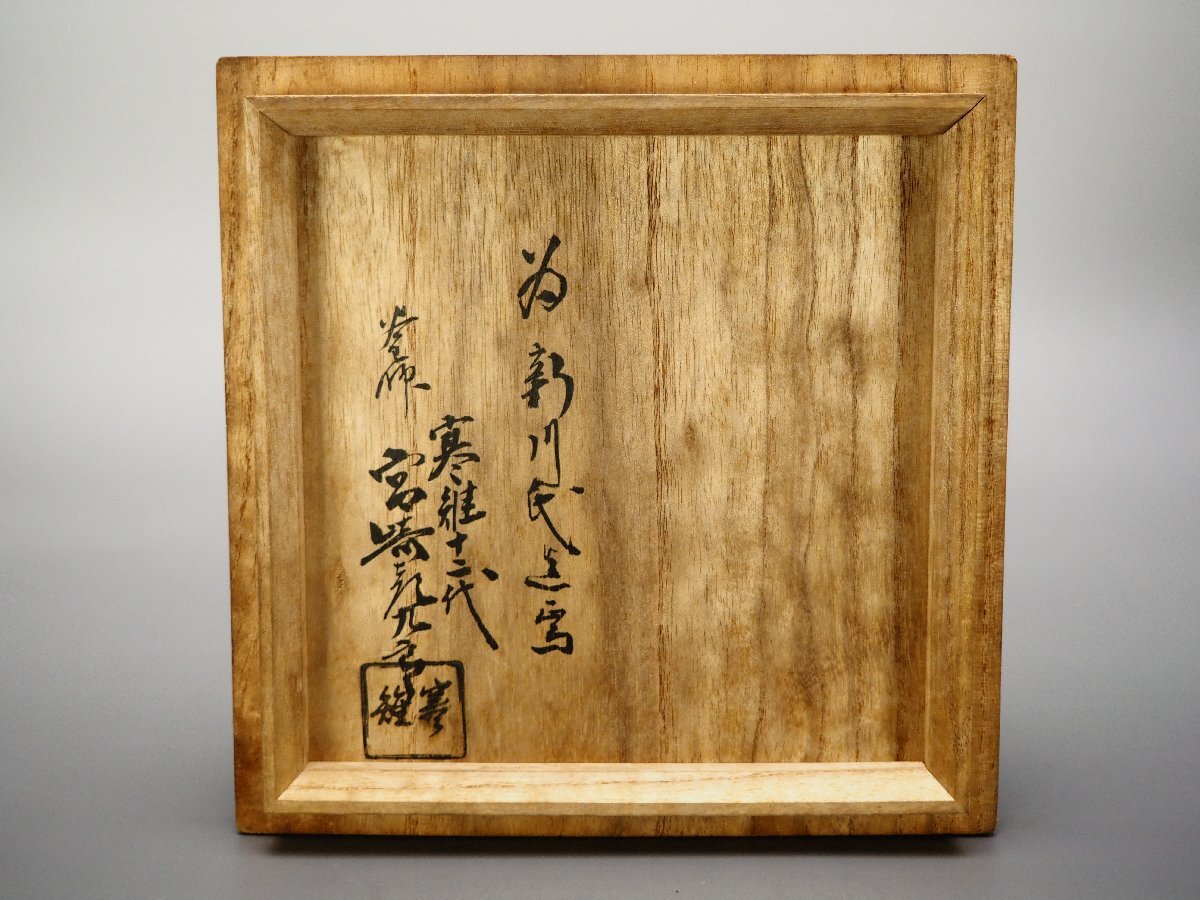 為 新川氏造焉
釜師
寒雉十二代
宮﨑彦九郎
寒雉